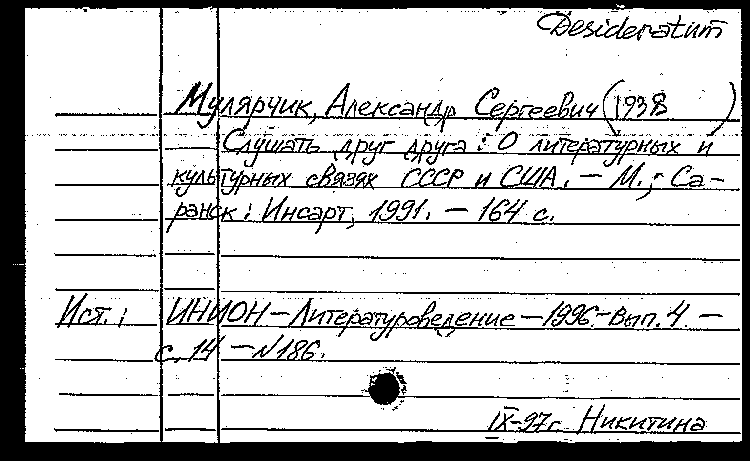 Desideratum
Мулярчик, Александр Сергеевич (1938 )
Слушать друг друга : О литературных и
культурных связях СССР и США. – М. ; Са-
ранск : Инсарт, 1991. – 164 с.
Ист. : ИНИОН – Литературоведение – 1996 – Вып. 4 –
с. 14 – N 186.
IX-97г. Никитина